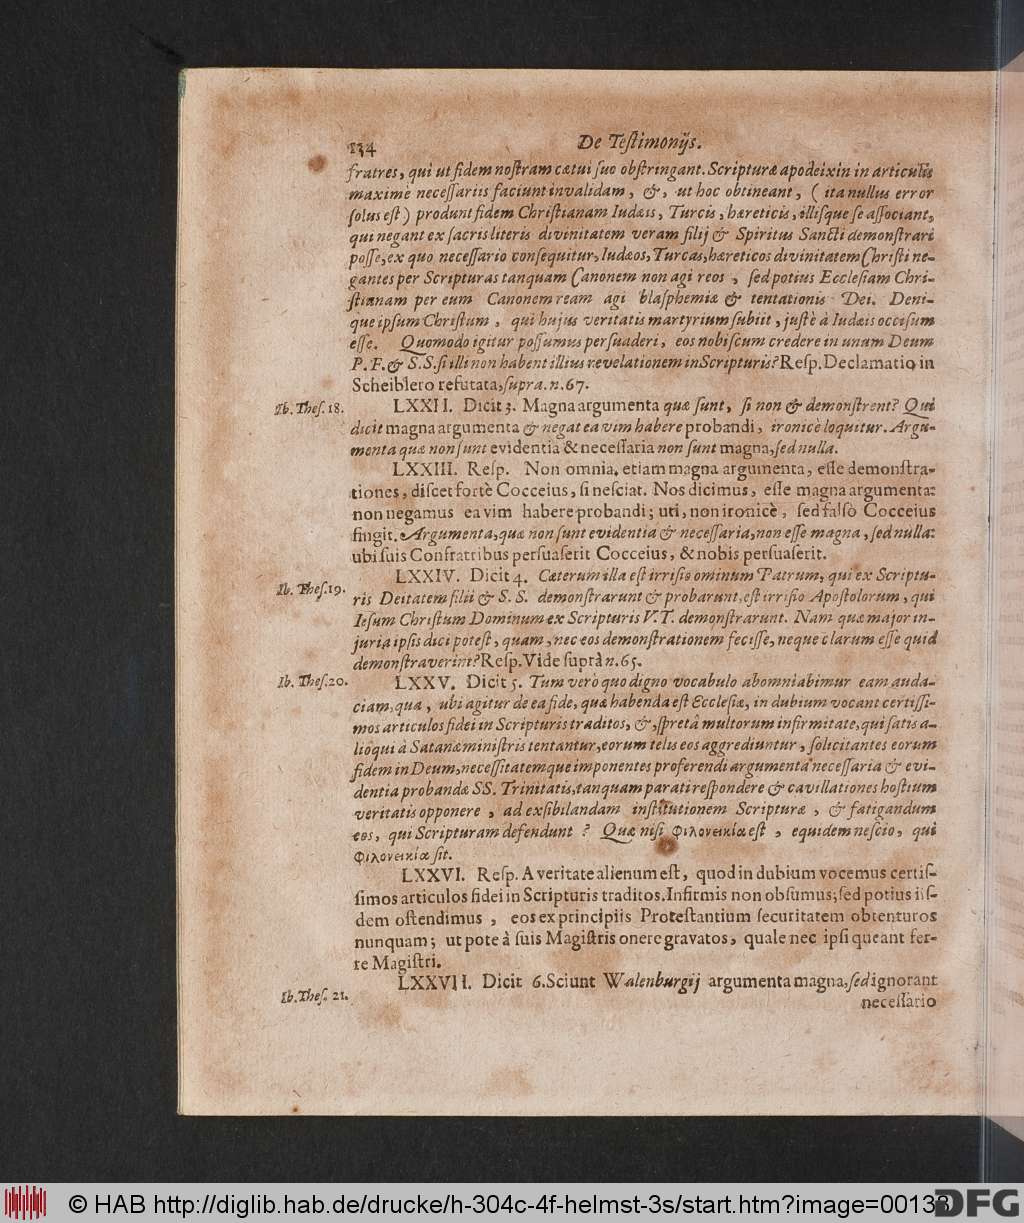 134 De Teſtimonijs.
fratres, qui ut fidem noſtram cætui ſuo obſtringant. Scripturæ apodeixin in articulis
maximè neceſſariis faciunt invalidam, &, ut hoc obtineant, (ita nullus error
ſolus eſt) produnt fidem Chriſtianam Iudæis, Turcis, hæreticis, illiſque ſe aſſociant,
qui negant ex ſacris literis divinitatem veram filij & Spiritus Sancti demonſtrari
poſſe, ex quo neceſſario conſequitur, Iudæos, Turcas, hæreticos divinitatem Chriſti ne-
gantes per Scripturas tanquam Canonem non agi reos, ſed potius Eccleſiam Chri-
ſtianam per eum Canonem ream agi blaſphemiæ & tentationis Dei. Deni-
que ipſum Chriſtum, qui hujus veritatis martyrium ſubiit, juſtè à Iudæis occiſum
eſſe. Quomodo igitur poſſumus perſuaderi, eos nobiſcum credere in unum Deum
P. F. & S. S. ſi illi non habent illius revelationem in Scripturis? Reſp. Declamatio in
Scheiblero refutata, ſupra. n. 67.
Ib. Theſ. 18. LXXII. Dicit 3. Magna argumenta quæ ſunt, ſi non & demonſtrent? Qui
dicit magna argumenta & negat ea vim habere probandi, ironicè loquitur. Argu-
menta quæ non ſunt evidentia & neceſſaria non ſunt magna, ſed nulla.
LXXIII. Reſp. Non omnia, etiam magna argumenta, eſſe demonſtra-
tiones, diſcet fortè Cocceius, ſi neſciat. Nos dicimus, eſſe magna argumenta:
non negamus ea vim habere probandi; uti, non ironicè, ſed falſò Cocceius
fingit. Argumenta, quæ non ſunt evidentia & neceſſaria, non eſſe magna, ſed nulla:
ubi ſuis Confratribus perſuaſerit Cocceius, & nobis perſuaſerit.
Ib. Theſ. 19. LXXIV. Dicit 4. Cæterum illa eſt irriſio ominum Patrum, qui ex Scriptu-
ris Deitatem filii & S. S. demonſtrarunt & probarunt, eſt irriſio Apoſtolorum, qui
Ieſum Chriſtum Dominum ex Scripturis V. T. demonſtrarunt. Nam quæ major in-
juria ipſis dici poteſt, quam, nec eos demonſtrationem feciſſe, neque clarum eſſe quid
demonſtraverint? Reſp. Vide ſuprà n. 65.
Ib. Theſ. 20. LXXV. Dicit 5. Tum verò quo digno vocabulo abominabimur eam auda-
ciam, qua, ubi agitur de ea fide, quæ habenda eſt Eccleſiæ, in dubium vocant certiſſi-
mos articulos fidei in Scripturis traditos, &, ſpretâ multorum infirmitate, qui ſatis a-
lioqui à Satanæ miniſtris tentantur, eorum telis eos aggrediuntur, ſolicitantes eorum
fidem in Deum, neceſſitatemque imponentes proferendi argumenta neceſſaria & evi-
dentia probandæ SS. Trinitatis, tanquam parati reſpondere & cavillationes hoſtium
veritatis opponere, ad exſibilandam inſtitutionem Scripturæ, & fatigandum
eos, qui Scripturam defendunt? Quæ niſi φιλονεικία eſt, equidem neſcio, qui
φιλονεικία ſit.
LXXVI. Reſp. A veritate alienum eſt, quod in dubium vocemus certiſ-
ſimos articulos fidei in Scripturis traditos. Infirmis non obſumus; ſed potius iiſ-
dem oſtendimus, eos ex principiis Proteſtantium ſecuritatem obtenturos
nunquam; ut pote à ſuis Magiſtris onere gravatos, quale nec ipſi queant fer-
re Magiſtri.
Ib. Theſ. 21. LXXVII. Dicit 6. Sciunt Walenburgij argumenta magna, ſed ignorant
neceſſario
© HAB http://diglib.hab.de/drucke/h-304c-4f-helmst-3s/start.htm?image=00138
DFG